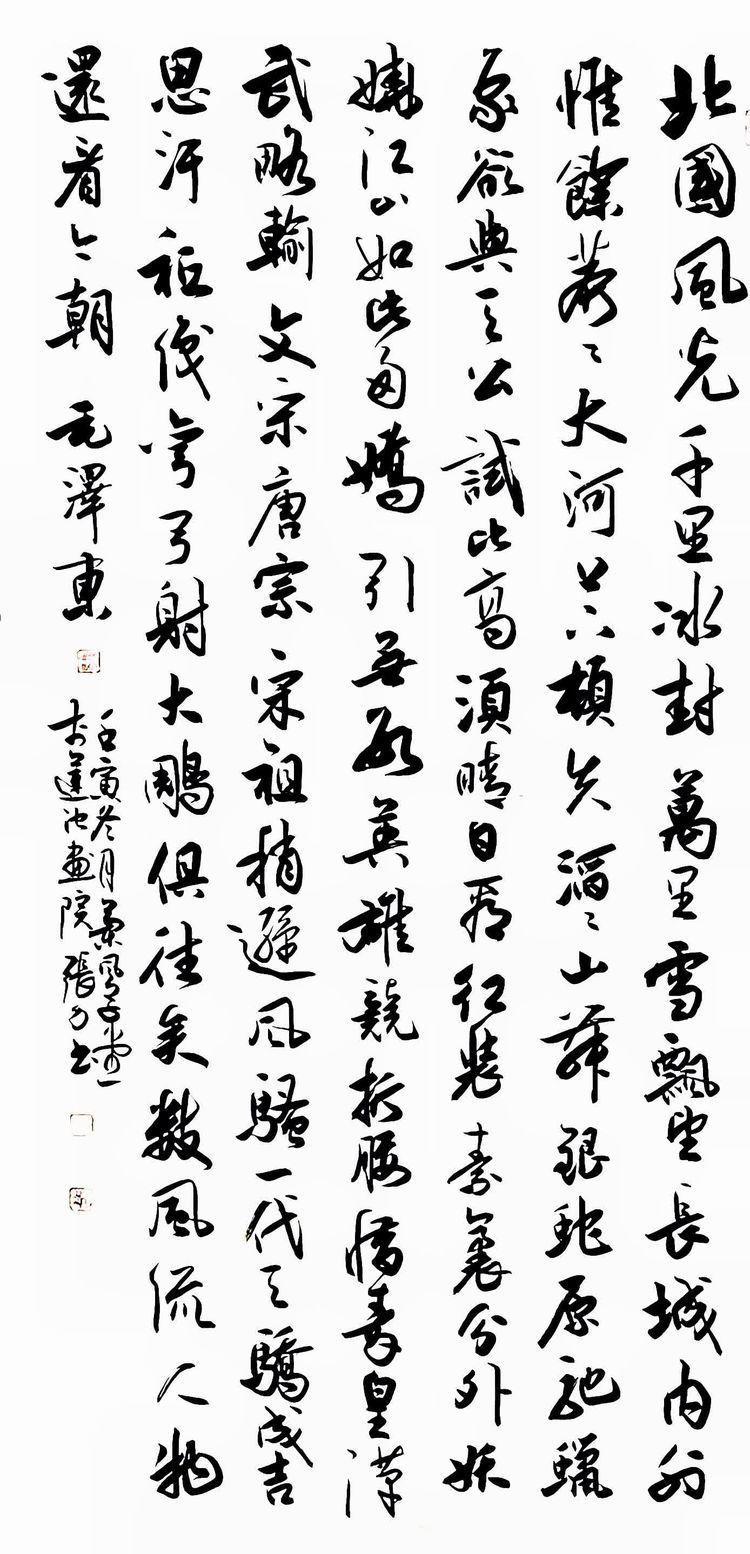 北國風光千里冰封萬里雪飄望長城內外
惟餘莽〻大河上下頓失滔〻山舞銀蛇原馳蠟
象欲與天公試比高須晴日看紅裝素裹分外妖
嬈江山如此多嬌引無數英雄競折腰惜秦皇漢
武略輸文采唐宗宋祖稍遜風騷一代天驕成吉
思汗祗識彎弓射大鵰俱往矣數風流人物
還看今朝 毛澤東
壬寅冬月
於蓮池畫院張力書